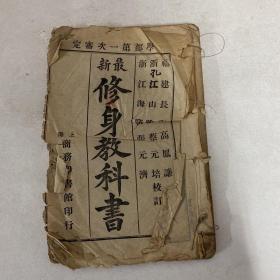 學部第一次審定
福建長 高鳳謙
浙江山 蔡元培 校訂
浙江海 張元濟
最新
修身教科書
上海
商務印書館印行